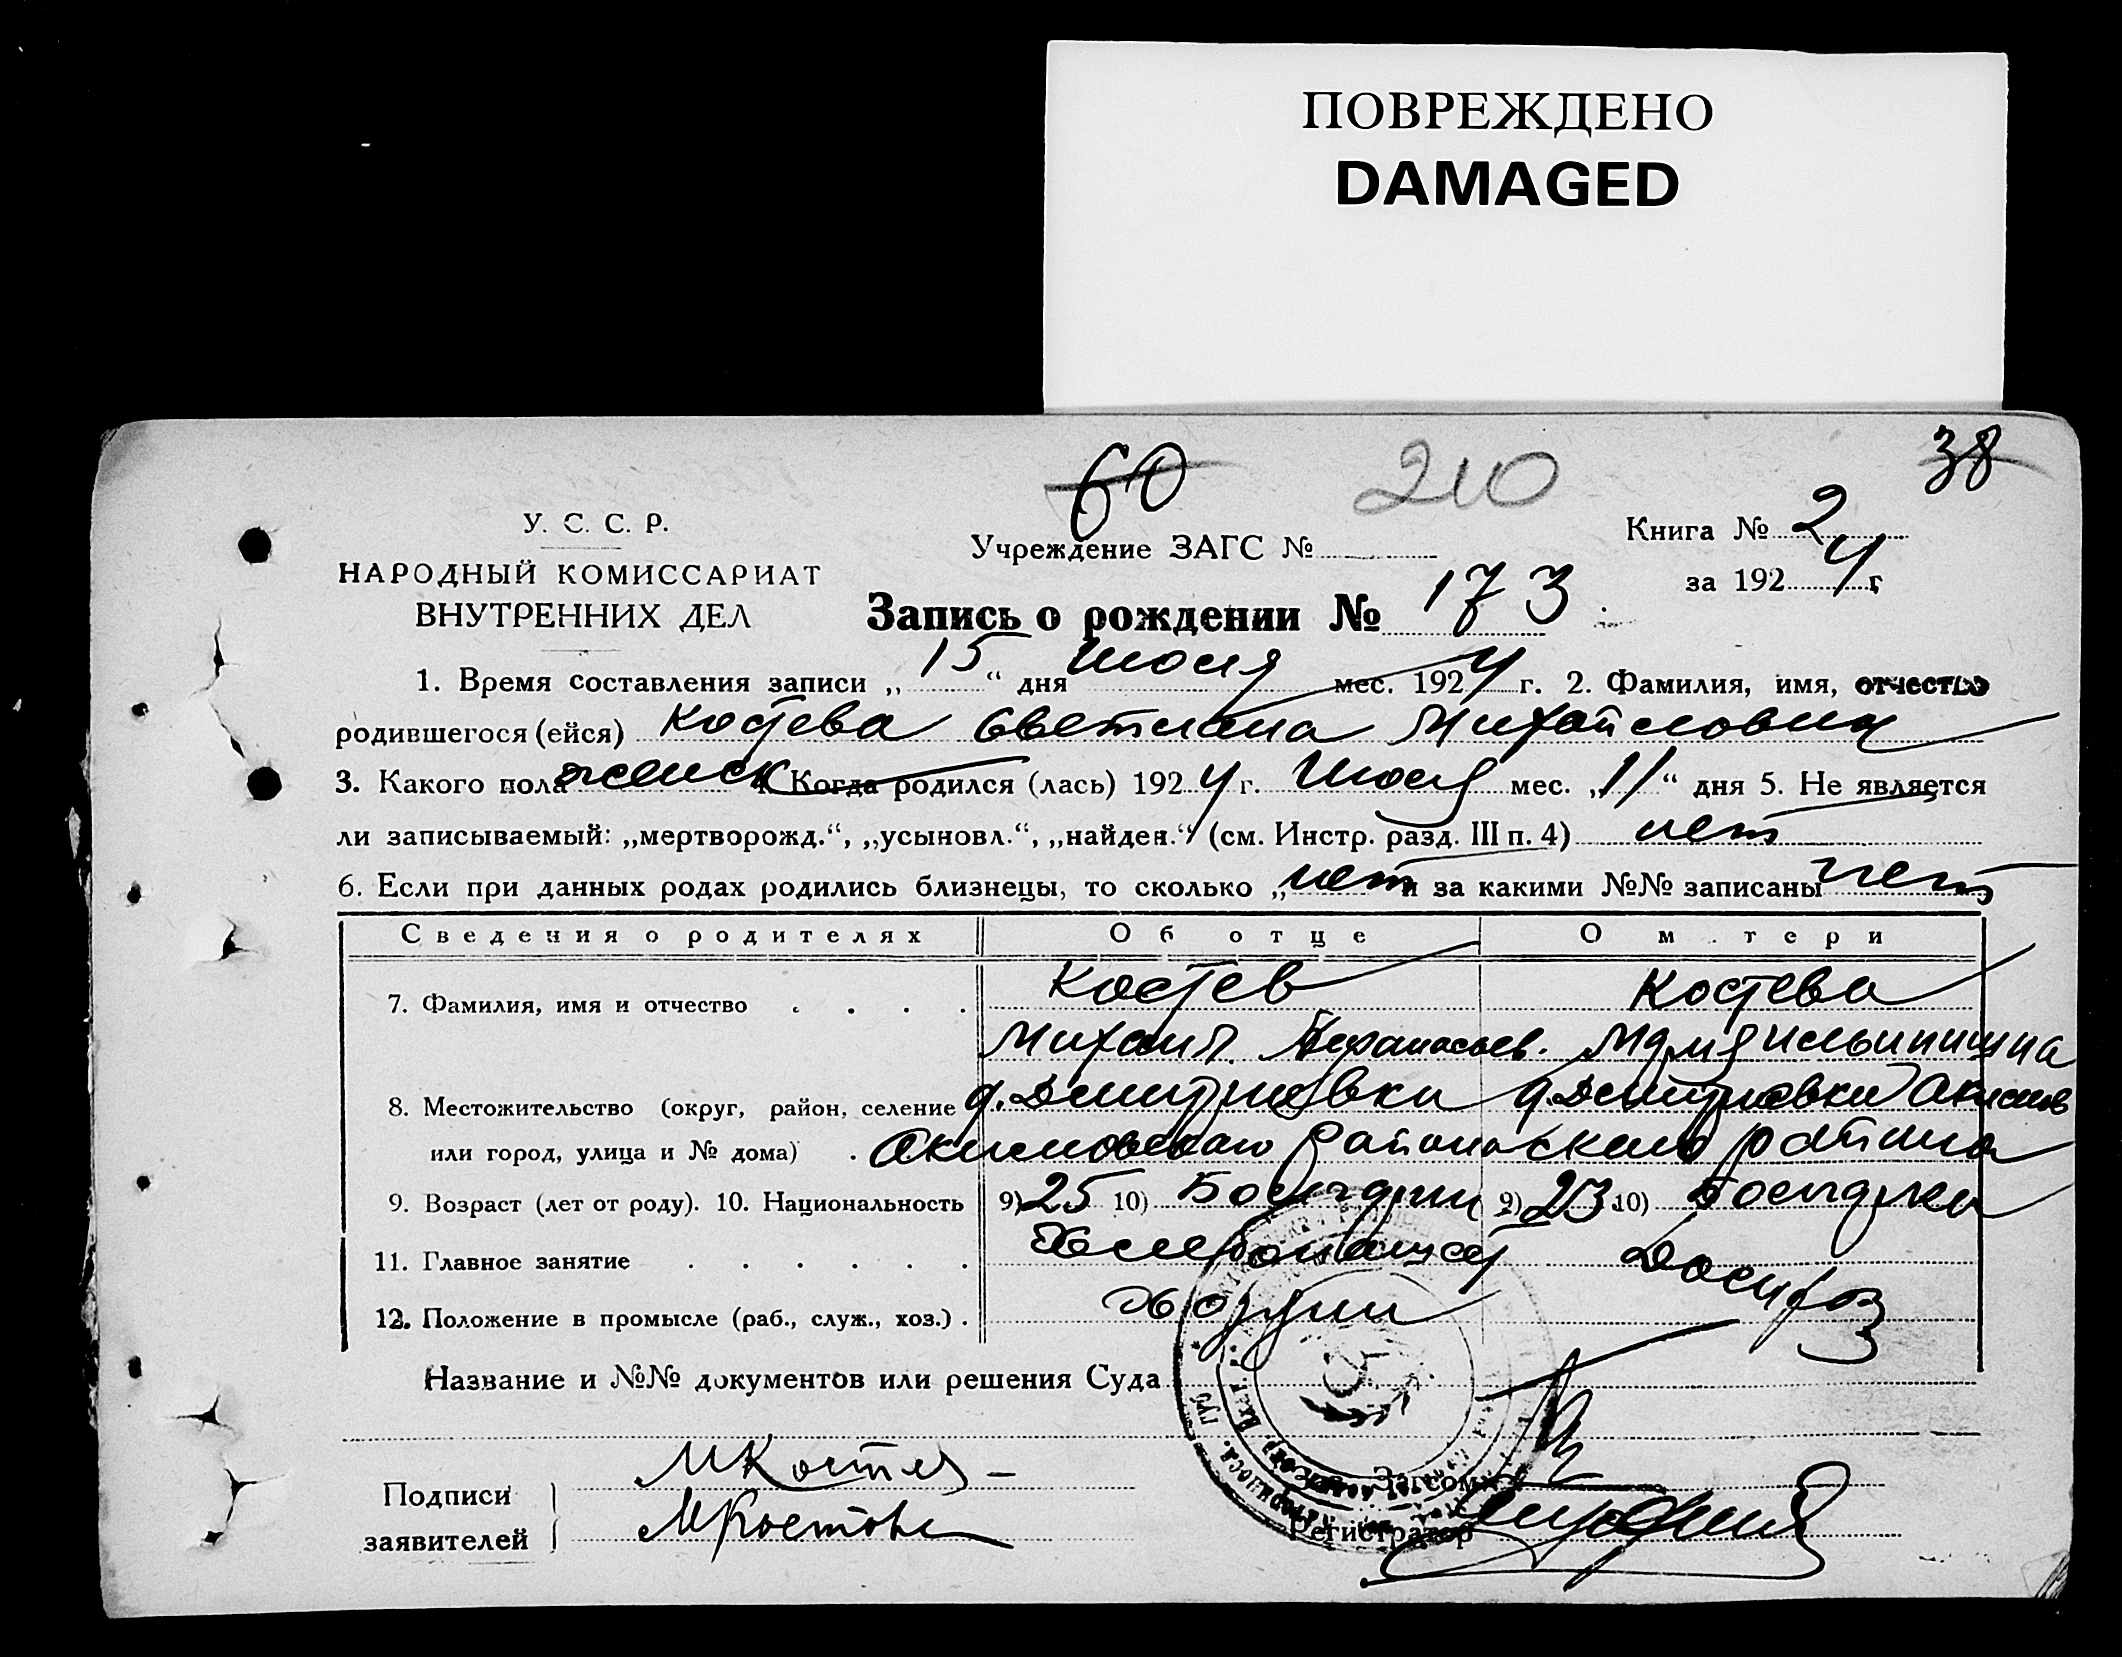 ПОВРЕЖДЕНО
DAMAGED
60 210 38
У. С. С. Р.
НАРОДНЫЙ КОМИССАРИАТ
ВНУТРЕННИХ ДЕЛ
Учреждение ЗАГС №
Книга № 2
за 1924 г
Запись о рождении № 173
1. Время составления записи „15“ дня Июля мес. 1924 г. 2. Фамилия, имя, отчество
родившегося (ейся) Костева Светлана Михайловна
3. Какого пола женск 4 Когда родился (лась) 1924 г. Июля мес. „11“ дня 5. Не является
ли записываемый: „мертворожд.“, „усыновл.“, „найден.“ (см. Инстр. разд. III п. 4) нет
6. Если при данных родах родились близнецы, то сколько „нет и за какими №№ записаны нет
Сведения о родителях Об отце О м тери
7. Фамилия, имя и отчество Костев Костева
Михаил Афанасьев. Мария Ильинишна
8. Местожительство (округ, район, селение д. Дмитровки д. Дмитровки Акимов
или город, улица и № дома) Акимовского района ского района
9. Возраст (лет от роду). 10. Национальность 9) 25 10) Болгарин 9) 23 10) Болгарка
11. Главное занятие Хлебопашец Домхоз
12. Положение в промысле (раб., служ., хоз.) Хозяин
Название и №№ документов или решения Суда
Подписи МКостев
заявителей МКостова
Загсом
Регистратор